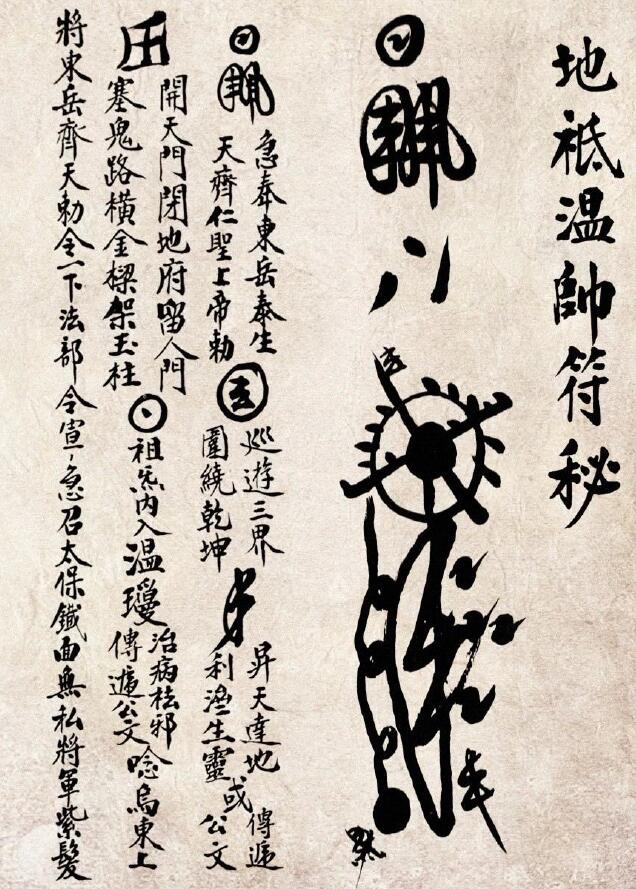 地祇温帥符秘
急奉東岳泰生
天齊仁聖上帝勅
巡遊三界
圍繞乾坤
昇天達地
利濟生靈
或
傳遞
公文
開天門閉地府留人門
塞鬼路橫金樑架玉柱
祖炁内入温瓊
治病祛邪
傳遞公文
唸烏東上
將東岳齊天勅令一下法部令宣急召太保鐵面無私將軍紫髮